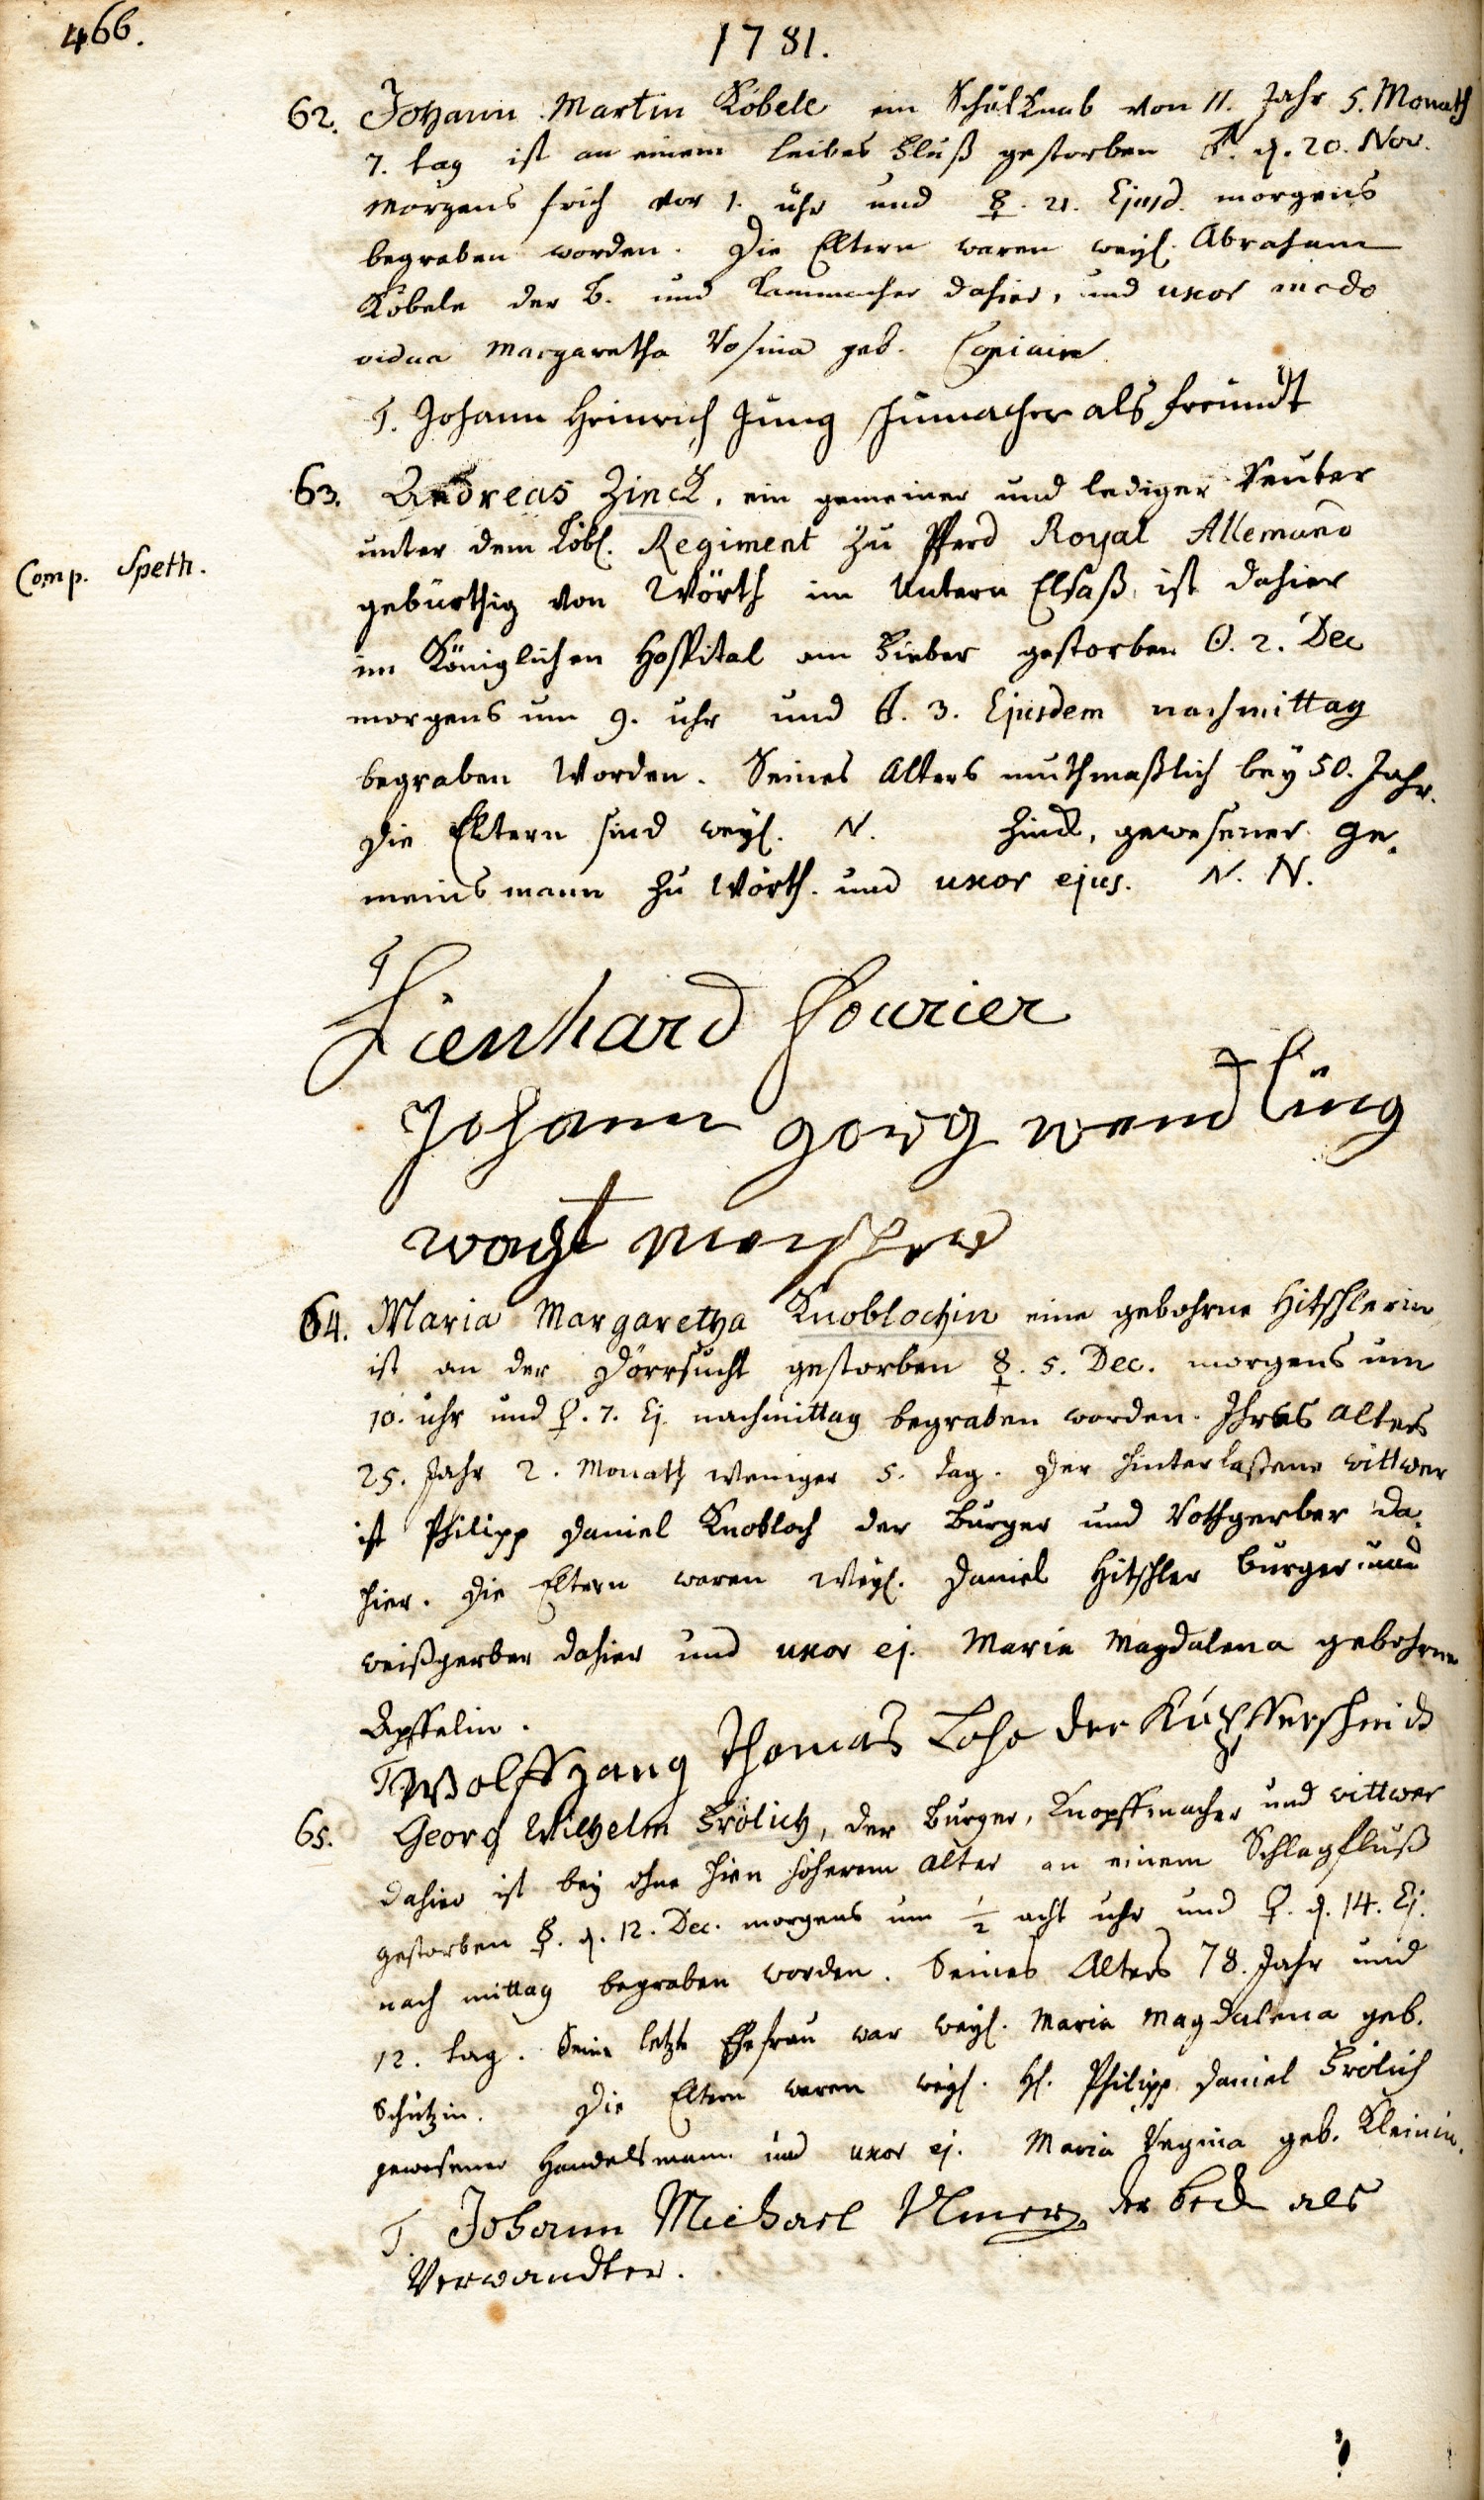 466.
1781.
62. Johann Martin Köbele ein Schul Knab von 11. Jahr 5. Monath
7. tag ist an einem Leibes Fluß gestorben ♂. d. 20. Nov.
morgens früh vor 1. uhr und ☿. 21. Ejusd. morgens
begraben worden. Die Eltern waren weyl. Abraham
Köbele der B. und Kammacher dahier, und uxor modo
vidua Margaretha Rosina geb.
T. Johann Heinrich Jung schumacher als freundt
63. Andreas Zinck, ein gemeiner und lediger Reuter
unter dem Löbl. Regiment zu Pferd Royal Allemand
Comp. Speth.
gebürthig von Wörth im Untern Elsaß, ist dahier
im Königlichen Hospital am Fieber gestorben ☉. 2. Dec
morgens um 9. uhr und ☾. 3. Ejusdem nachmittag
begraben Worden. Seines Alters muthmaßlich bey 50. Jahr.
Die Eltern sind weyl. N. Zinck, gewesener Ge-
meinsmann zu Wörth. und uxor ejus. N. N.
T
Lienhard fourier
Johann gorg wendling
wacht meister
64. Maria Margaretha Knoblochin eine gebohrne Hitschlerin
ist an der Dörrsucht gestorben ☿. 5. Dec. morgens um
10. uhr und ♀. 7. Ej. nachmittag begraben worden. Ihres Alters
25. Jahr 2. Monath weniger 5. tag. Der hinterlaßene wittwer
ist Philipp Daniel Knobloch der Burger und Rothgerber da-
hier. Die Eltern waren Weyl. Daniel Hitschler Burger und
weißgerber dahier und uxor ej. Maria Magdalena gebohrne
Apffelin.
T Wolffgang Thomas Lohr der Kupfferschmidt
65. Georg Wilhelm Frölich, der Burger, Knopffmacher und wittwer
dahier ist bey ohne hin höherem alter an einem Schlagfluß
gestorben ☿. d. 12. Dec. morgens um ½ acht uhr und ♀. d. 14. Ej.
nach mittag begraben worden. Seines Alters 78. Jahr und
12. tag. Seine letzte Ehefrau war weyl. Maria Magdalena geb.
Schützin. Die Eltern waren weyl. H. Philipp Daniel Frölich
gewesener Handelsmann und uxor ej. Maria Regina geb. Kleinin.
T. Johann Michael Ulmer, der beck als
Verwandter.